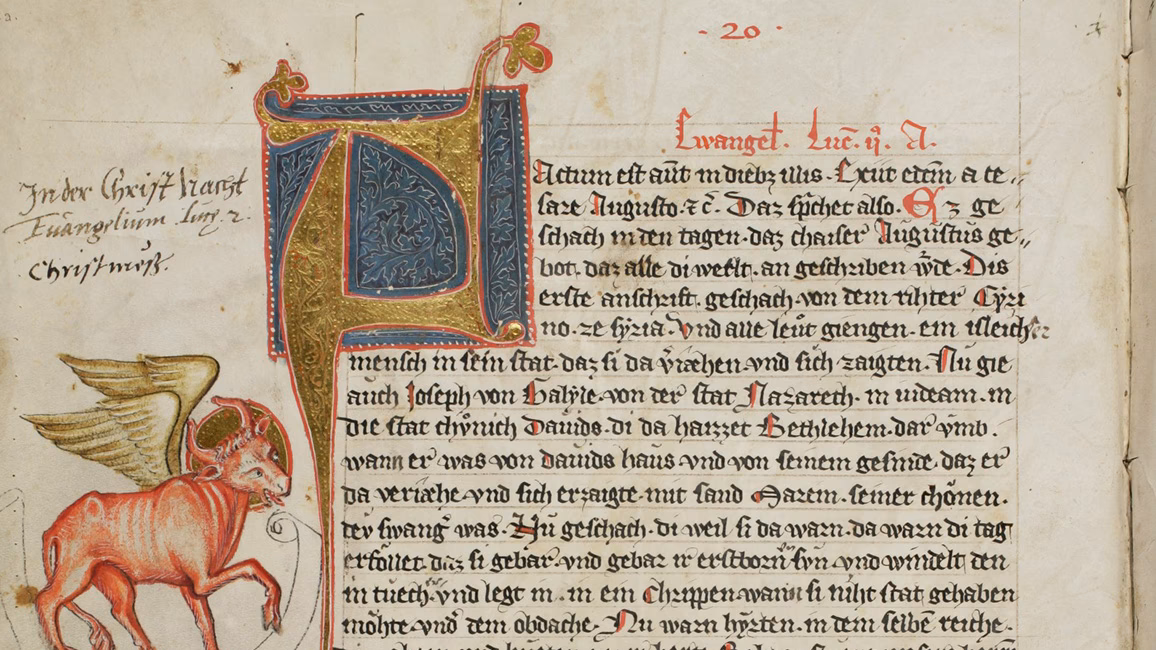 · 20 ·
Ewangel. Luc. ij. A.
In der Christ Nacht
Euangelium Lucę. 2.
Christmeß.
Factum est aut in dieb; illis. Exiit edcm a ce
sare Augusto. ⁊ c̄. Daz sp̄chet also. Ez ge
schach in den tagen. daz chaiser Augustus ge
bot. daz alle di werlt. an geschriben w̄de. Dis
erste anschrift. geschach. von dem rihter Cyri
no. ze syria. Vnd alle leut giengen. ein isleicher
mensch in sein stat. daz si da v̓iæhen. vnd sich zaigten. Nu gie
auch Joseph von Galyle. von der stat Nazareth. in iudeam. in
die stat chunich Dauids. di da haizzet Bethlehem. dar vmb.
wann er was von dauids haus vnd von seinem gesinde. daz er
da veriæhe. vnd sich erzaigte. mit sand Marein. seiner chonen.
dev swang̓ was. Nu geschach. di weil si da warn. da warn di tag
erfollet. daz si gebar. vnd gebar ir erstborn sun. vnd windelt den
in tuech. vnd legt in. in ein chrippen. wann si niht stat gehaben
mohte. vnd̓ dem obdache. Nu warn hyrten. in dem selbē reiche.